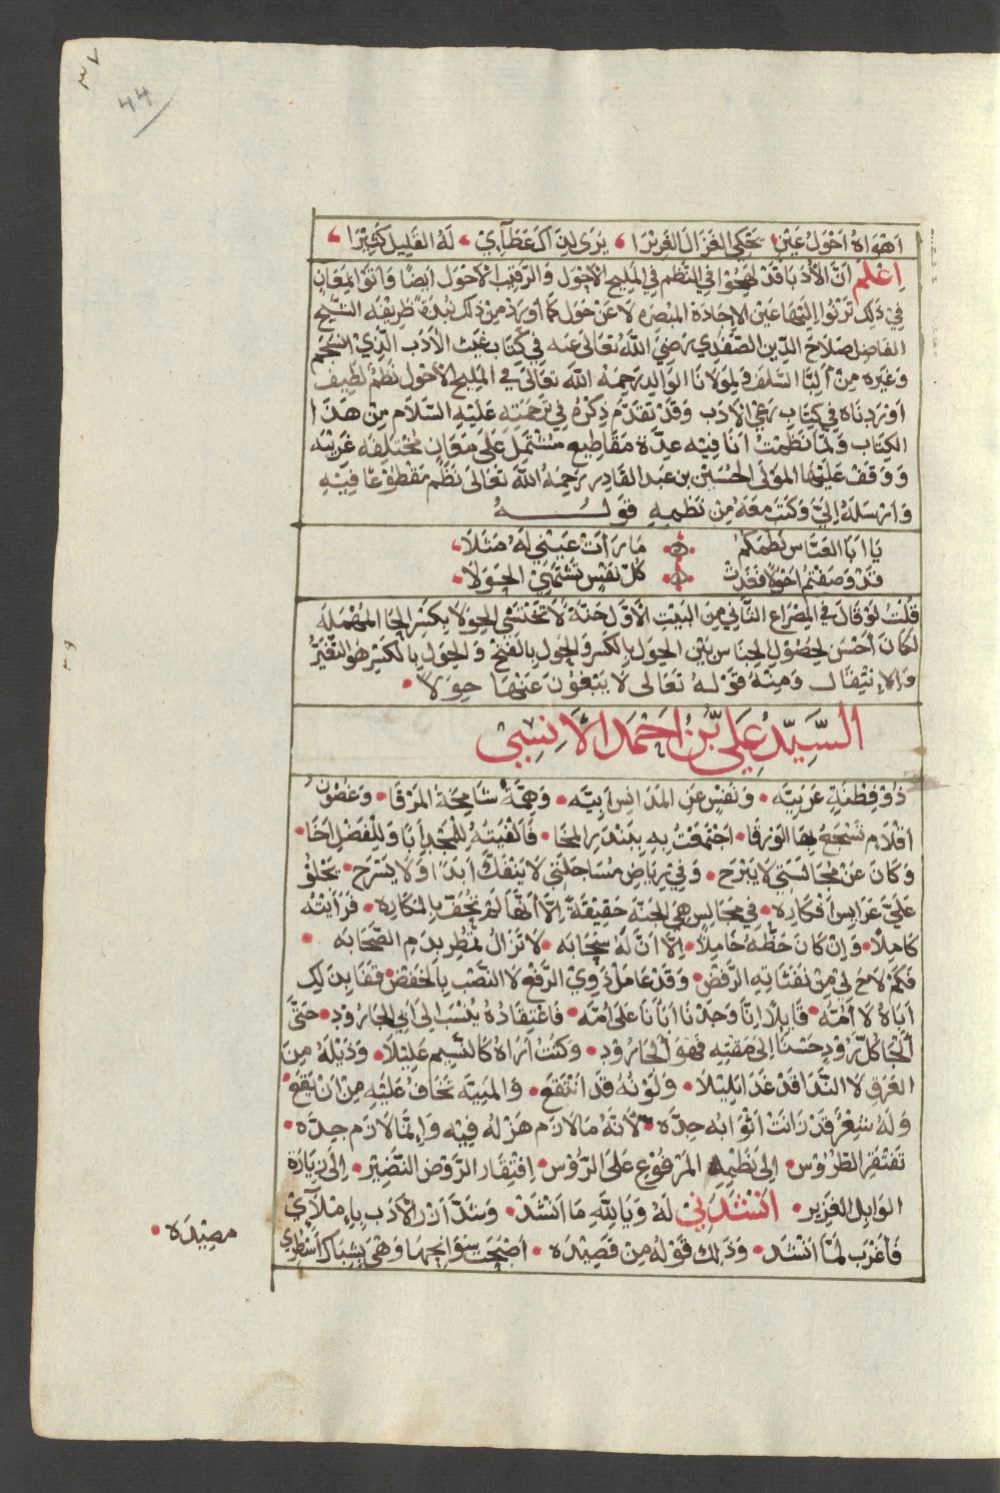 ٣٧
44
اهواه احول عين يحكي الغزال الغريرا يرى لذاك عطآءي له القليل كثيرا
اعلم ان الأدبا قد لهجوا في النظم في المليح الأحول والرقيب الأحول ايضًا واتوا بمعان
في ذلك ترنوا اليها عين الإجادة المبصره لا عن حول كما أورد من ذلك نبذة ظريفه الشيخ
الفاضل صلاح الدين الصفدي رضي الله تعالى عنه في كتاب غيث الأدب الذي انسجم
وغيره من ألبا السلف ولمولانا الوالد رحمه الله تعالى في المليح الأحول نظم لطيف
اوردناه في كتاب ريحي الادب وقد تقدم ذكره في ترجمته عليه السلام من هذا
الكتاب ولما نظمت انا فيه عدة مقاطيع مشتمل على معان مختلفه غريبه
ووقف عليها المولى الحسين بن عبد القادر رحمه الله تعالى نظم مقطوعًا فيه
وارسله إلي وكتب معه من نظمه قوله
يا ابا العباس نظمكم ما رأت عيني له مثلا
قد وصفتم احولا فغدت كل نفس تشتهي الحولا
قلت لو قال في المصراع الثاني من البيت الأول جنة لا تختشي الحولا بكسر الحا المهمله
لكان أحسن لحصول الجناس بين الحول بالكسر والحول بالفتح والحول بالكسر هو التغير
والإنتقال ومنه قوله تعالى لا يبغون عنها حولا
السيد علي بن احمد الآنسي
ذو فطنة عربيه ونفس عن المدانس ابيه وهمة شامخة المرقا وغصون
اقلام تسجع بها الورقا اجتمعت به ببندر المخا فألفيته للمجد أبا وللفضل اخا
وكان عن مجالستي لا يبرح وفي رياض مساجلتي لا ينفك ابدًا ولا يسرح يجلو
علي عرايس افكاره في مجالس هي الجنة حقيقة إلا أنها لم تحف بالمكاره فرأيته
كاملا وإن كان حظه خاملا إلا ان له سجابه لا تزال تمطر بدم الصحابه
فكم لاح لي من نفثاته الرفض وقد عامل ذوي الرفع لا النصب بالخفض فقفا بذلك
اباه لا أمه قايلا إنا وجدنا ابانا على امه فاعتقاده ينسب الى ابي الجارود حتى
ألجا كل رود حسنا إلى مقته فهو الجارود وكنت أراه كالنسيم عليلا وذيله من
العرق لا الندا قد غدا بليلا ولونه قد انتقع والميته تخاف عليه من ان يقع
وله شعر قد زانت اثوابه جده لأنه ما لازم هزله فيه وإنما لازم جده
تفتقر الطروس إلى نظمه المرفوع على الرؤس افتقار الروض النضير إلى زيارة
الوابل الغزير انشدني له ويالله ما انشد وشد ازر الأدب بإملآءي
فأغرب لما انشد وذلك قوله من قصيده اضحت سوانحها وهي بشباك أسطري
مصيده